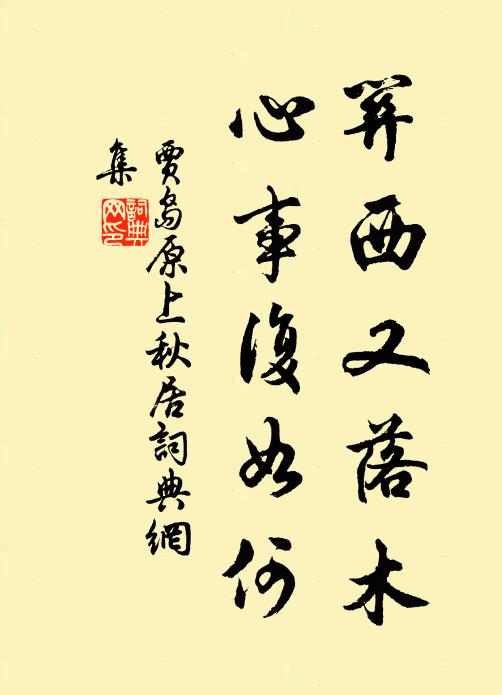 關西又落木
心事復如何
賈島原上秋居詞典網
集
詞典
網印